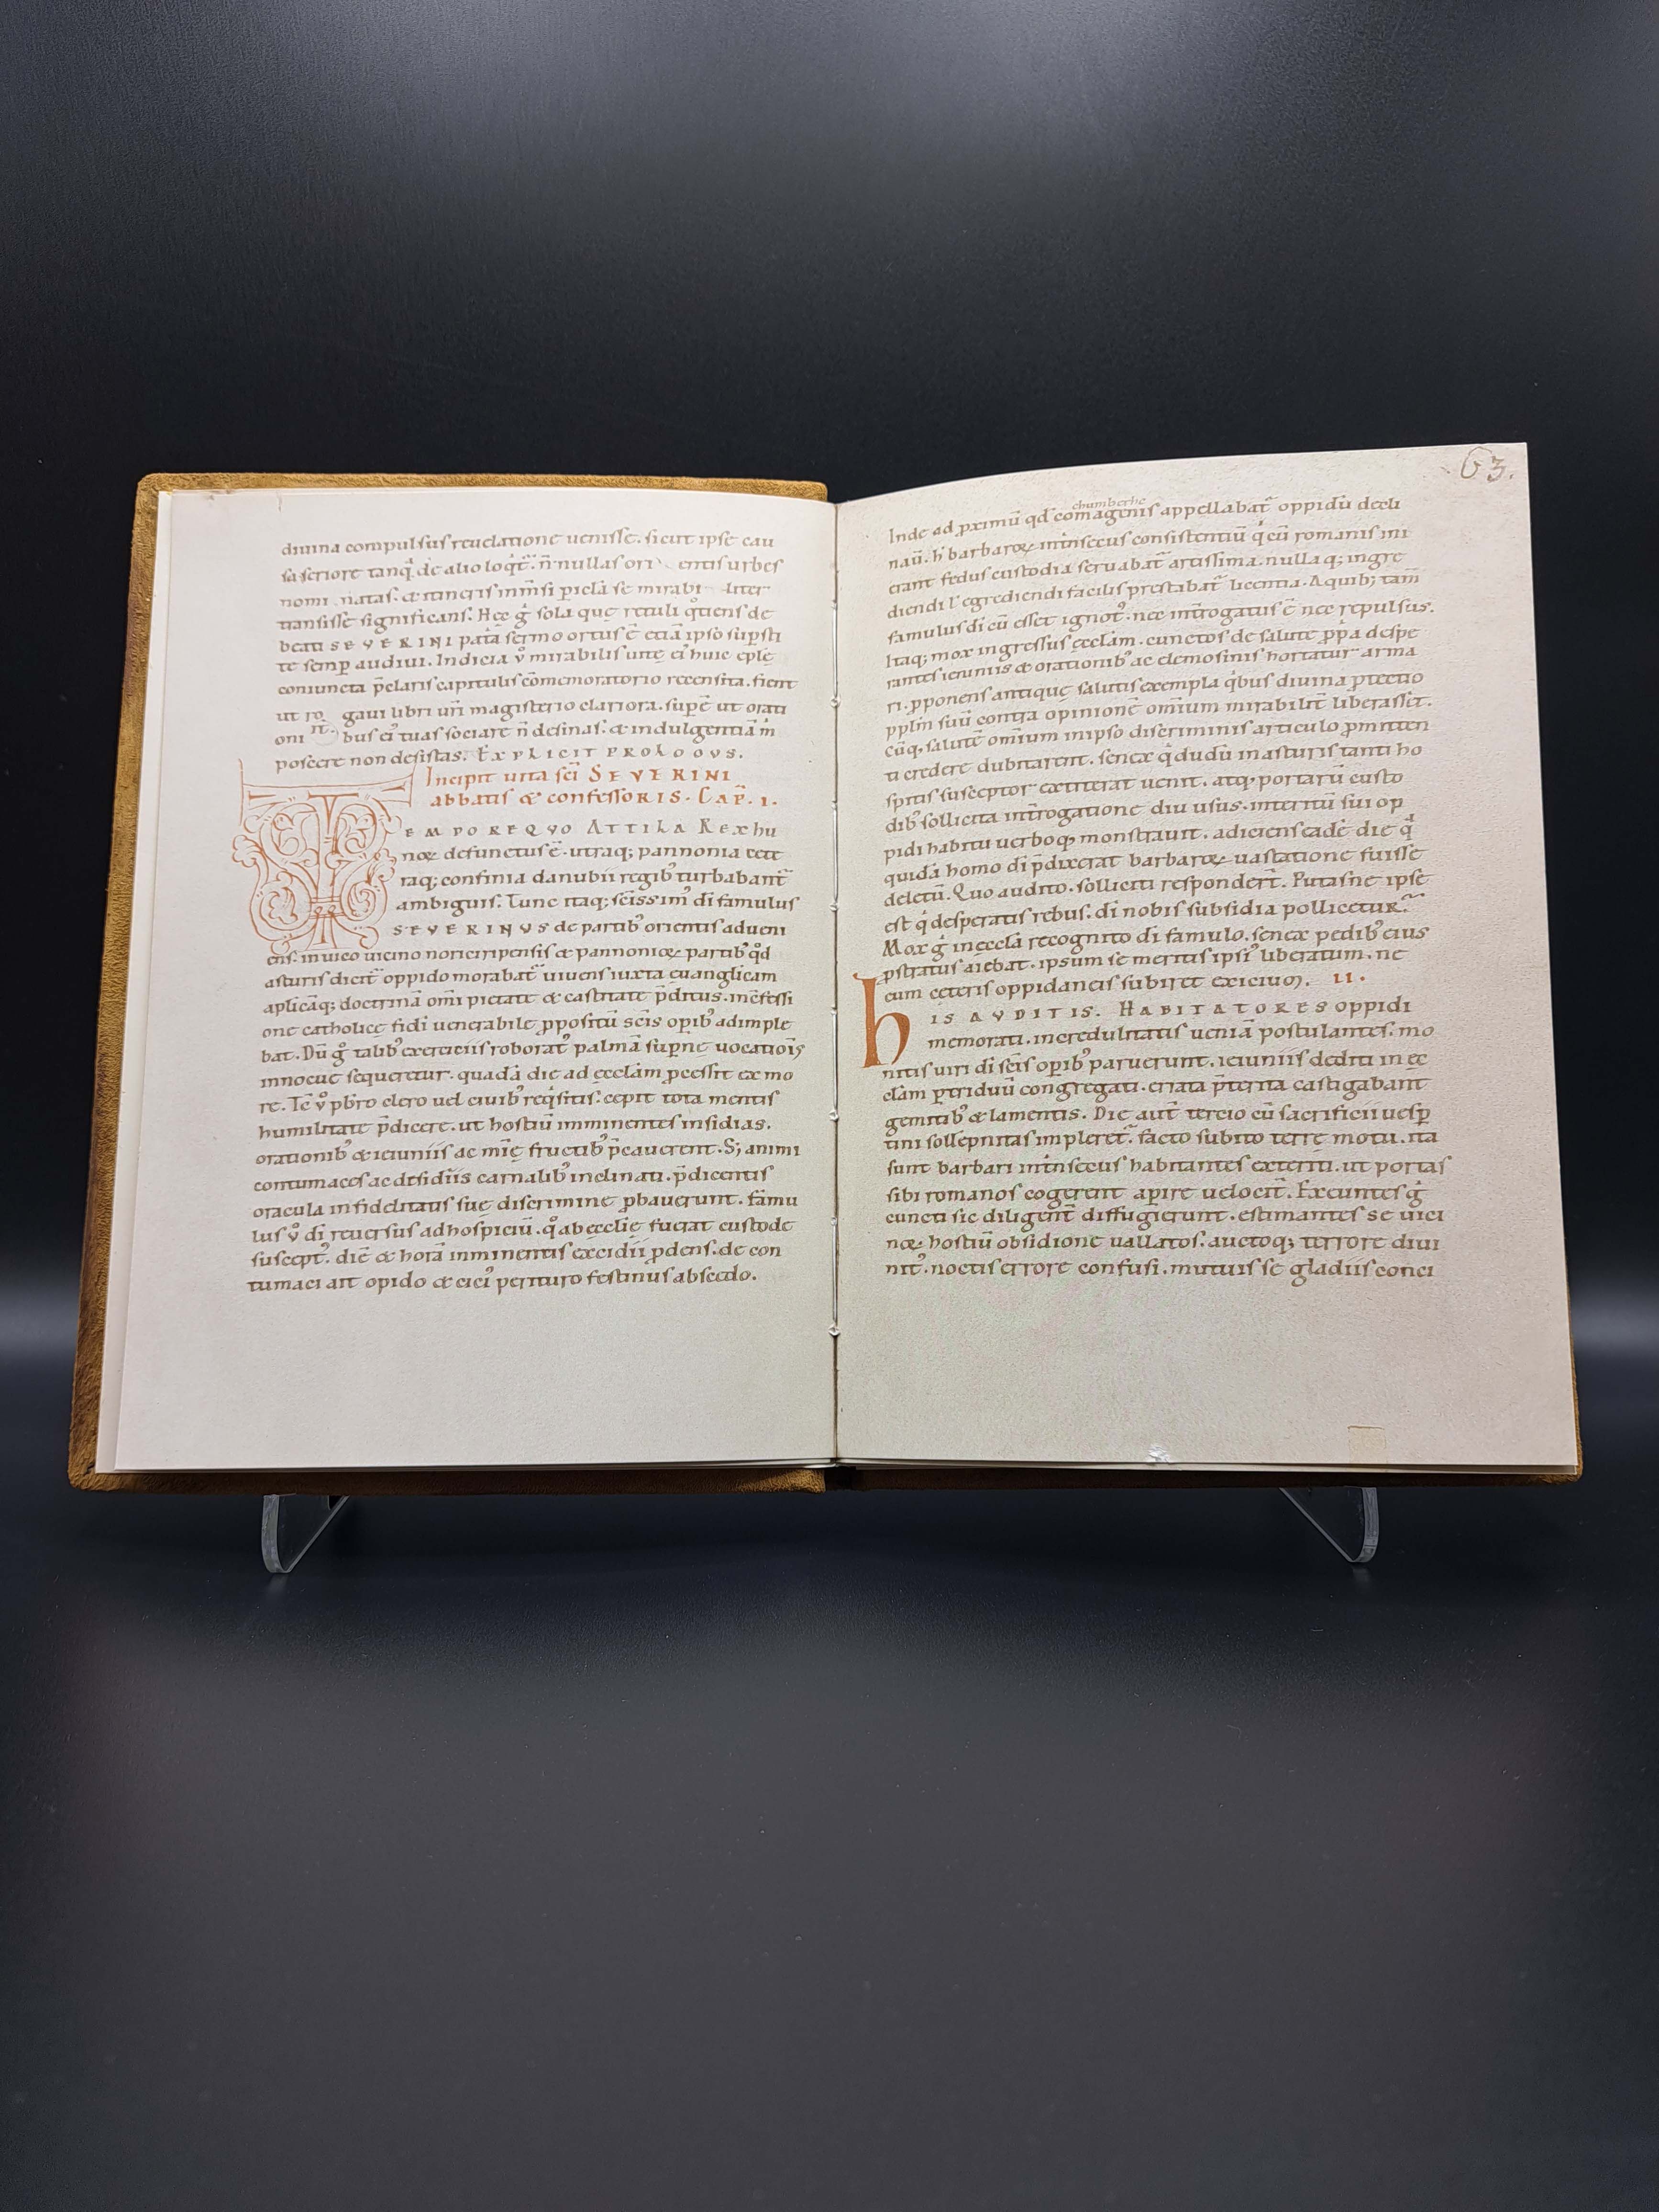 diuina compulsus reuelatione uenisse. sicut ipse cau
sa seriore tanq̇ de alio loq̇t᷑. n̄ nullas ori entis urbes
nomi natas. & itineris inm̄si ꝑicl̄a se mirabi liter
transisse significans. Hec ġ sola quę retuli q̊tiens de
beati SEVERINI pat̄a sermo ortus ē etiā ipso sup̱sti
te semꝑ audiui. Indicia v̊ mirabilis uitę ei᷒ huic ep̄lę
coniuncta p̄claris capitulis cōmemoratorio recensita. fient
ut ro gaui libri ur̄i magisterio clariora. supē ut orati
oni n. bus ei᷒ tuas sociare n̄ desinas. & indulgentiā m̄
poscere non desistas. EXPLICIT PROLOGVS.
Incipit uita sc̄i SEVERINI
abbatis & confessoRIS. CAP̄. I.
TEMPORE QVO ATTILA REx hu
noꝝ defunctus ē. utraq; pannonia cete
raq; confinia danubii regib᷒ turbabant᷑
ambiguis. Tunc itaq; sc̄issim᷒ di famulus
SEVERINVS de partib᷒ orientis adueni
ens. in uico uicino noriciripensis & pannonioꝝ partib᷒ q̊d
asturis dicit᷑ oppido morabat᷑ uiuens iuxta euanglicam
aplicāq; doctrinā om̄i pietate & castitate p̄ditus. in cōfessi
one catholicę fidi uenerabile ꝓpositū sc̄is oꝑib᷒ adimple
bat. Dū g̊ talib᷒ exerciciis roborat᷒ palmā suꝑnę uocatiōis
innocue sequeretur. quadā die ad ęcclam ꝓcessit ex mo
re. Tc̄ v̊ pb̄ro clero uel ciuib᷒ req̇sitis. cepit tota mentis
humilitate p̄dicere. ut hostiū imminentes insidias.
orationib᷒ & ieiuniis ac mīę fructib᷒ p̄cauerent. S; animi
contumaces ac desidiis carnalib᷒ inclinati. p̄dicentis
oracula infidelitatis suę discrimine ꝓbauerunt. famu
lus v̊ di reuersus ad hospiciū. q̊ ab ęcclię fuerat custode
suscept᷒. diē & horā imminentis excidii ꝓdens. de con
tumaci ait opido & cici᷒ perituro festinus abscedo.
63.
chumberhe
Inde ad ꝓximū qd̄ comagenis appellabat᷑ oppidū decli
nauī. h̄ barbaroꝝ intrīsecus consistentiū q̇ cū romanis ini
erant fedus custodia seruabat᷑ artissima. nullaq; ingre
diendi l' egrediendi facilis prestabat᷑ licentia. A quib; tam̄
famulus di cū esset ignot᷒. nec int̄rogatus ē nec repulsus.
Itaq; mox ingressus ęcclam. cunctos de salute ꝓp̄a despe
rantes ieiuniis & orationib᷒ ac elemosinis hortatur arma
ri. ꝓponens antiquę salutis exempla q̇bus diuina ꝓtectio
pplm̄ suū contra opinionē om̄ium mirabilit᷑ liberasset.
Cūq; salutē omnium in ipso discriminis articulo ꝓmitten
ti credere dubitarent. senex q̇ dudū in asturis tanti ho
spitis susceptor extiterat uenit. atq; portarū custo
dib᷒ sollicita int̄rogatione diu usus. interitū sui op
pidi habitu uerboq; monstrauit. adiciens eadē die q̇
quidā homo di p̄dixerat barbaroꝝ uastatione fuisse
deletū. Quo audito. solliciti respondert̄. Putasne ipse
est q̇ desperatis rebus. di nobis subsidia pollicetur.
Mox ġ in ęccl̄a recognito di famulo. senex pedib᷒ eius
ꝓstratus aiebat. ipsum se meritis ipsi᷒ liberatum. ne
cum ceteris oppidaneis subiret exicium. II.
hIS AVDITIS. HABITATORES oppidi
memorati. incredulitatis ueniā postulantes. mo
nitis uiri di sc̄is oꝑib᷒ paruerunt. ieiuniis dediti in ęc
clam ꝑtriduū congregati. errata p̄terita castigabant
gemitib᷒ & lamentis. Die aut̄ tercio cū sacrificii uesꝑ
tini sollepnitas impleret᷑. facto subito terrę motu. ita
sunt barbari int̄nsecus habitantes exteriti. ut portas
sibi romanos cogerent aꝑire uelocit᷑. Exeuntes ġ
cuncti sic diligent᷑ diffugierunt. estimantes se uici
noꝝ hostiū obsidione uallatos. auctoq; terrore diui
nit᷒. noctis errore confusi. mutuis se gladiis conci